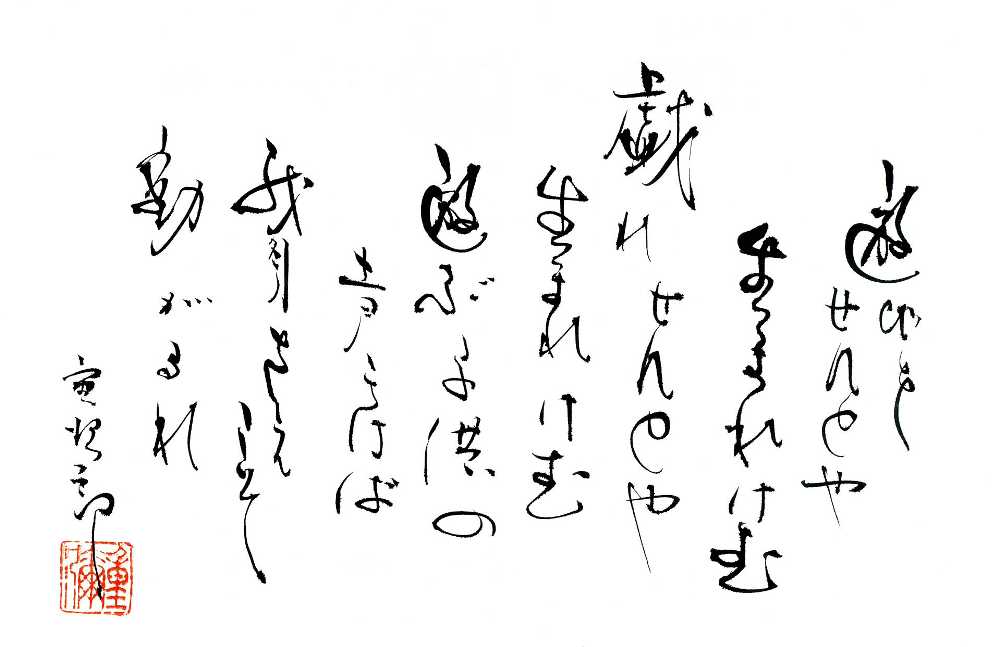 遊びを
せんとや
生まれけむ
戯れ
せんとや
生まれけむ
遊ぶ子供の
声きけば
我身さえ
こそ
動がるれ